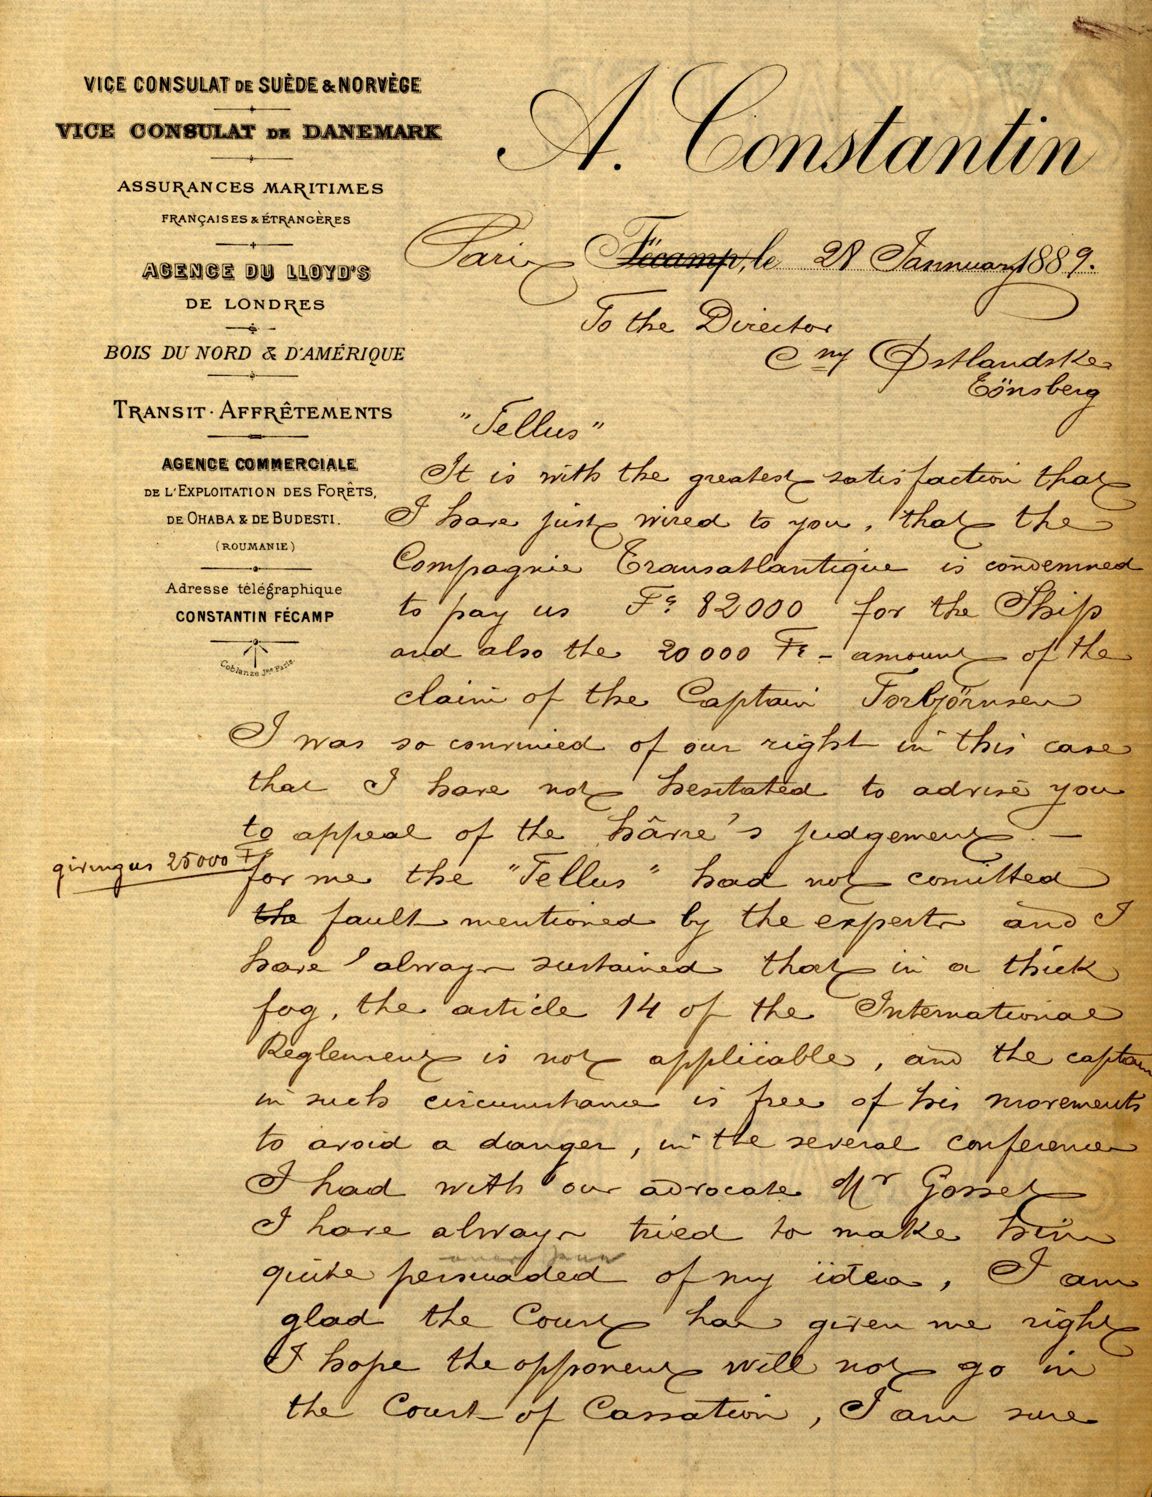 VICE CONSULAT DE SUÈDE & NORVÈGE
VICE CONSULAT DE DANEMARK
ASSURANCES MARITIMES
FRANÇAISES & ÉTRANGÈRES
AGENCE DU LLOYD'S
DE LONDRES
BOIS DU NORD & D'AMÉRIQUE
TRANSIT · AFFRÊTEMENTS
AGENCE COMMERCIALE
DE L'EXPLOITATION DES FORÊTS,
DE OHABA & DE BUDESTI.
(ROUMANIE)
Adresse télégraphique
CONSTANTIN FÉCAMP
A. Constantin
Paris Fécamp, le 28 Jannuary 1889.
To the Director
Cny Østlandske
Tönsberg
"Tellus"
It is with the greatest satisfaction that
I have just wired to you, that the
Compagnie Transatlantique is condemned
to pay us Fs 82000 for the Ship
and also the 20000 Fs - amount of the
claim of the Captain Torbjörnsen
I was so convinied of our right in this case
that I have not hesitated to advise you
to appeal of the hâvre's judgement. —
giving us 25000 Fs
for me the "Tellus" had not comitted
the fault mentioned by the experts and I
have always sustained that in a thick
fog, the article 14 of the International
Reglement is not applicable, and the captain
in such circumstance is free of his movements
to avoid a danger, in the several conferences
I had with our advocate Mr Gosset
I have always tried to make him
quite persuaded of my idea, I am
glad the Court has given me right
I hope the opponent will not go in
the Court of Cassation, I am sure